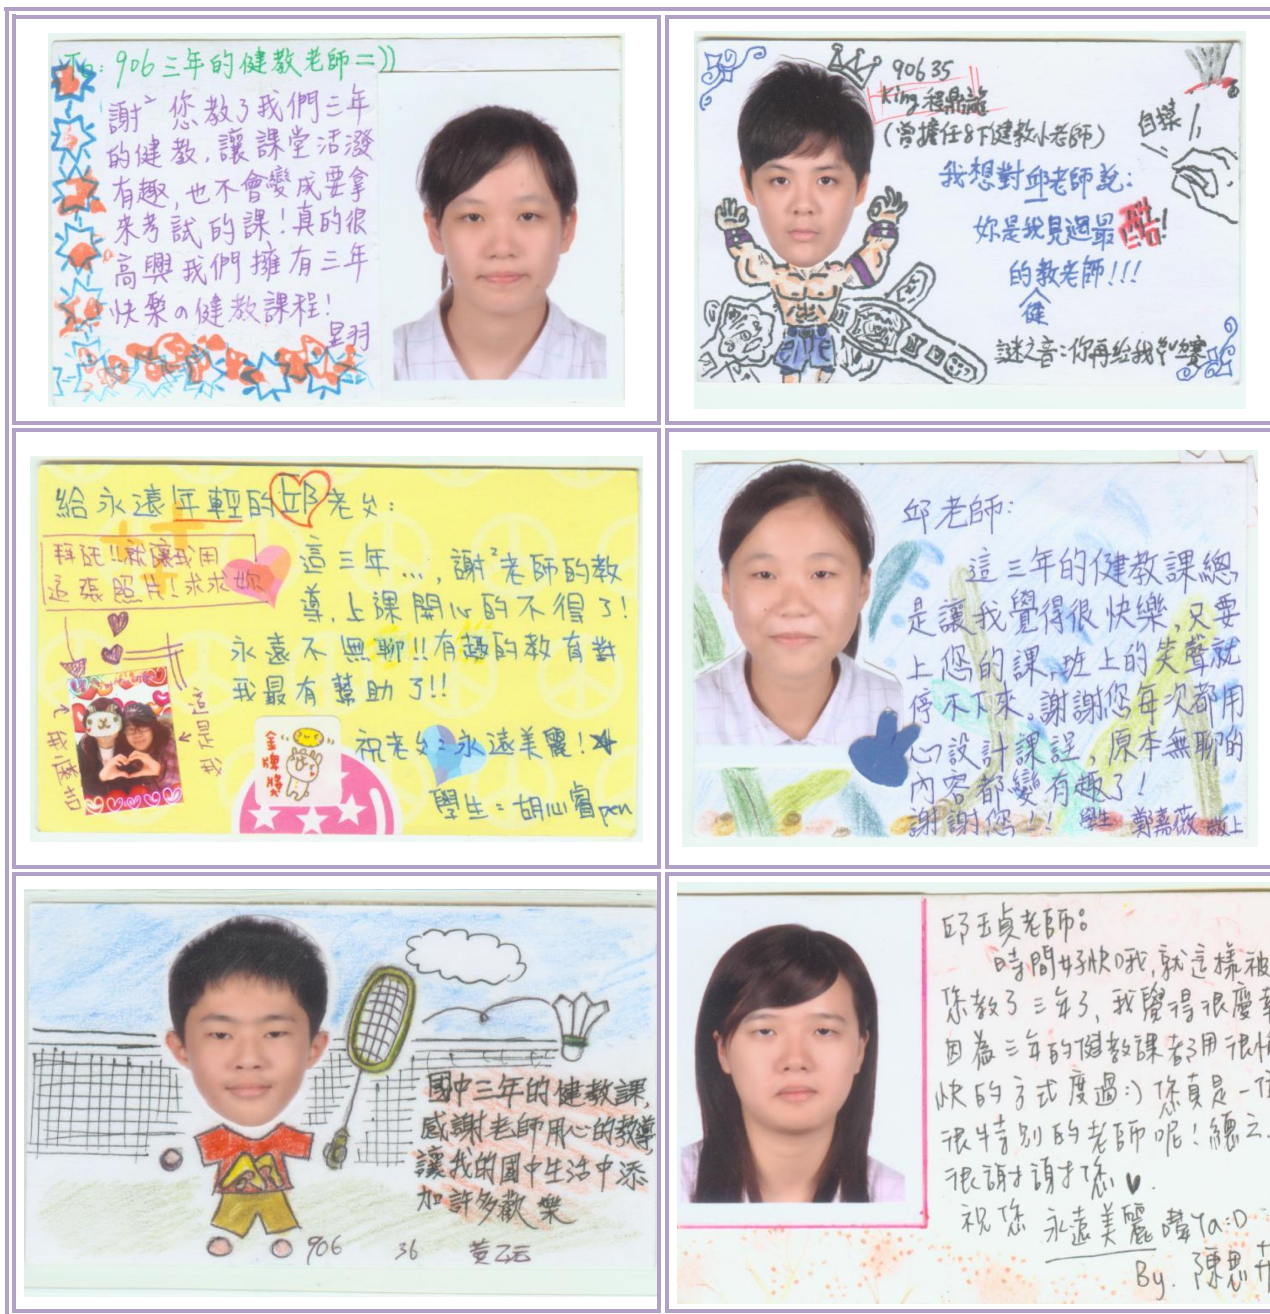 To: 906三年的健教老師=))
謝²您教了我們三年
的健教,讓課堂活潑
有趣,也不會變成要拿
來考試的課!真的很
高興我們擁有三年
快樂の健教課程!
昱羽
90635
King 程鼎龍
(曾擔任8下健教小老師)
我想對邱老師說:
妳是我見過最酷!
的教老師!!!
健
謎之音:你再給我
給永遠年輕的邱老ㄕ:
拜託!!就讓我用
這張照片!求求妳
這三年...,謝²老師的教
導,上課開心的不得了!
永遠不無聊!!有趣的教有對
我最有幫助了!!
這是我
我麻吉
金牌獎
祝老ㄕ:永遠美麗!
學生:胡心甯pen
邱老師:
這三年的健教課總
是讓我覺得很快樂,只要
上您的課,班上的笑聲就
停不下來。謝謝您每次都用
心設計課程,原本無聊的
內容都變有趣了!
謝謝您!! 學生 鄭嘉薇 敬上
國中三年的健教課,
感謝老師用心的教導,
讓我的國中生活中添
加許多歡樂
906 36 黃乙云
邱玉貞老師:
時間好快哦,就這樣被
您教了三年了,我覺得很慶幸
因為三年的健教課都用很愉
快的方式度過:)您真是一位
很特別的老師呢!總之.
很謝謝您♥.
祝您 永遠美麗 嘿Ya:D
By. 陳思